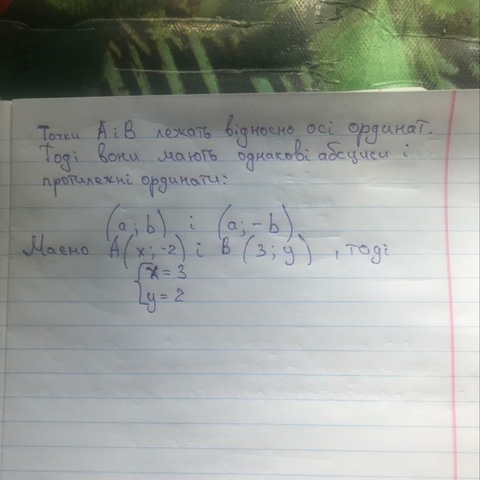 Точки А і В лежать відносно осі ординат.
Тоді вони мають однакові абсциси і
протилежні ординати:
(a; b) і (a; -b)
Маємо А(x; -2) і В (3; y) , тоді
{x = 3
y = 2